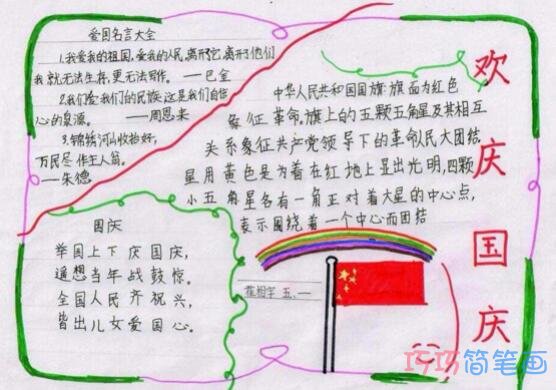 爱国名言大全
1.我爱我的祖国,爱我的人民,离开它,离开他们
我就无法生存,更无法写作。—巴金
2.我们爱我们的民族,这是我们自信
心的泉源。——周恩来
3.锦绣河山收拾好,
万民尽作主人翁。
——朱德
国庆
举国上下庆国庆,
遥想当年战鼓惊。
全国人民齐祝兴,
皆出儿女爱国心。
中华人民共和国国旗旗面为红色
象征革命,旗上的五颗五角星及其相互
关系象征共产党领导下的革命人民大团结,
星用黄色是为着在红地上显出光明,四颗
小五角星各有一角正对着大星的中心点,
表示围绕着一个中心而团结
五、一
欢庆国庆
巧巧简笔画